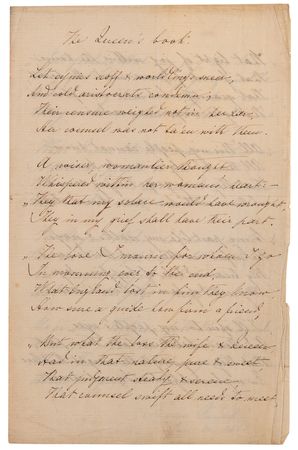 The Queen's book.
Let cynics scoff & worldlings sneer,
And cold aristocrats condemn;
Their censure weighed not in her ear,
Her counsel was not taken with them.
A wiser, womanlier thought
Whispered within her woman's heart:—
"They that my solace would have wrought
They in my grief shall have their part.
"The love I mourn for whom I go
In mourning ever to the end,
What England lost in him they know
How sure a guide, how firm a friend,
"But what the loss the wife & Queen
Had in that nature pure & sweet
That judgment steady & serene
That counsel swift all needs to meet